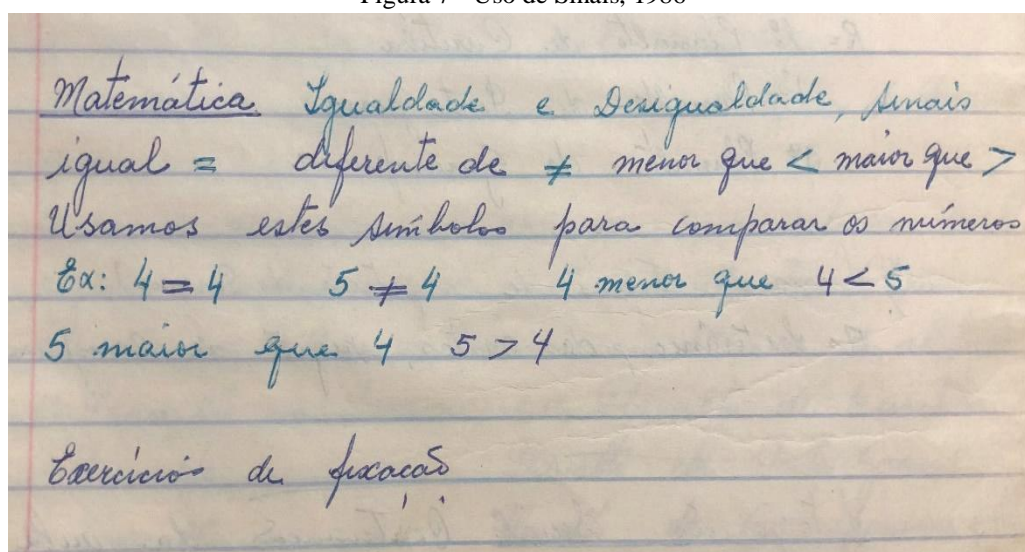 Figura 7 – Uso de Sinais, 1986
Matemática Igualdade e Desigualdade, sinais
igual = diferente de ≠ menor que < maior que >
Usamos estes símbolos para comparar os números
Ex: 4 = 4 5 ≠ 4 4 menor que 4 < 5
5 maior que 4 5 > 4
Exercícios de fixação